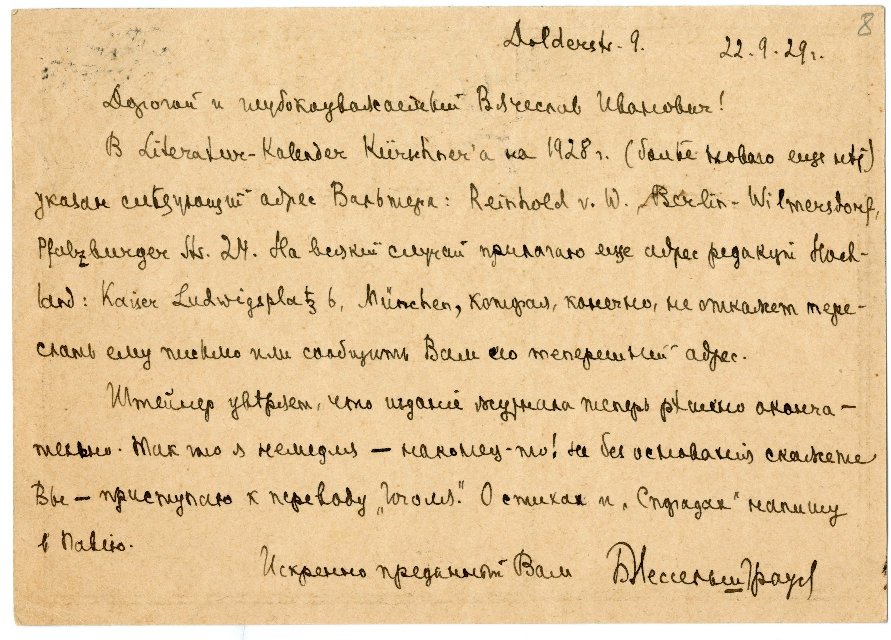 8
Dolderstr. 9. 22.9.29 г.
Дорогой и глубокоуважаемый Вячеслав Иванович!
В Literatur-Kalender Kürschner'a на 1928 г. (болѣе новаго еще нѣт)
указан слѣдующий адрес Вальтера: Reinhold v. W. Berlin-Wilmersdorf,
Pfalzburger Str. 24. На всякий случай прилагаю еще адрес редакции Hoch-
land: Kaiser Ludwigsplatz 6, München, которая, конечно, не откажет пере-
слать ему письмо или сообщить Вам его теперешний адрес.
Штейнер увѣряет, что издание журнала теперь рѣшено оконча-
тельно. Так что я немедля — наконец-то! не без основания скажете
Вы — приступаю к переводу
О стихах и напишу
в Павию.
Искренно преданный Вам